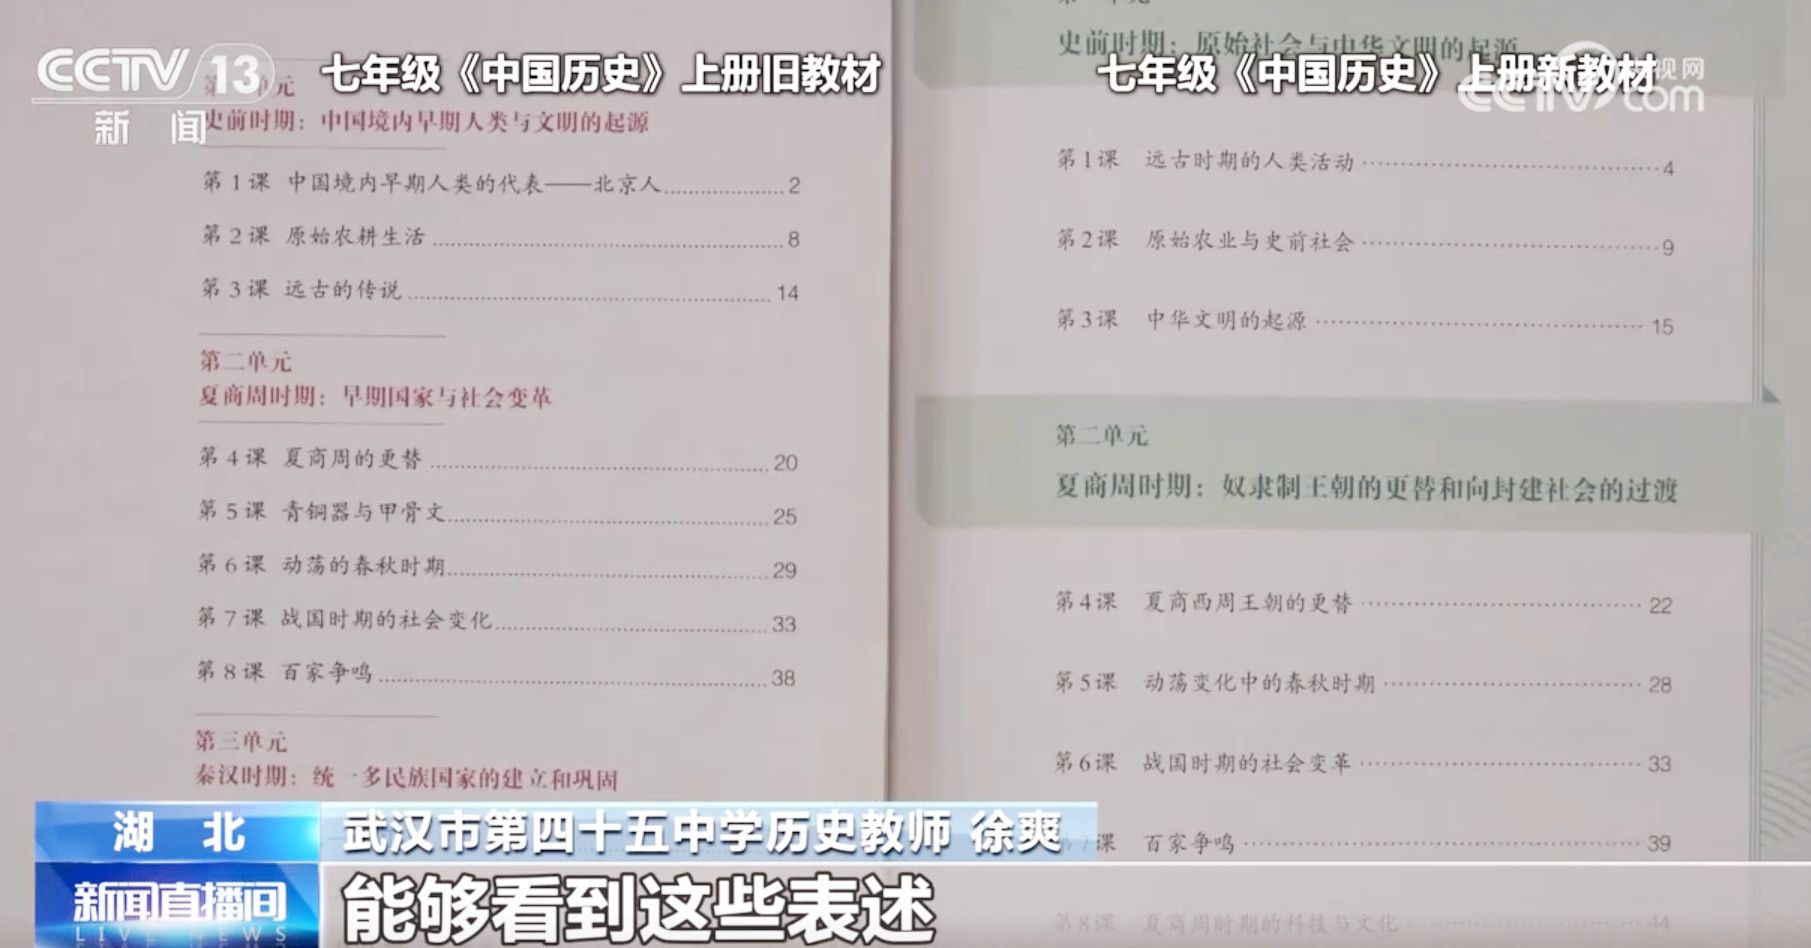 CCTV 13
新闻
七年级《中国历史》上册旧教材
第 单元
史前时期：中国境内早期人类与文明的起源
第1课 中国境内早期人类的代表——北京人 2
第2课 原始农耕生活 8
第3课 远古的传说 14
第二单元
夏商周时期：早期国家与社会变革
第4课 夏商周的更替 20
第5课 青铜器与甲骨文 25
第6课 动荡的春秋时期 29
第7课 战国时期的社会变化 33
第8课 百家争鸣 38
第三单元
秦汉时期：统一多民族国家的建立和巩固
七年级《中国历史》上册新教材
央视网
CCTV.com
史前时期：原始社会与中华文明的起源
第1课 远古时期的人类活动 4
第2课 原始农业与史前社会 9
第3课 中华文明的起源 15
第二单元
夏商周时期：奴隶制王朝的更替和向封建社会的过渡
第4课 夏商西周王朝的更替 22
第5课 动荡变化中的春秋时期 28
第6课 战国时期的社会变革 33
第7课 百家争鸣 39
第8课 夏商周时期的科技与文化 44
湖北
武汉市第四十五中学历史教师 徐爽
新闻直播间
LIVE NEWS
能够看到这些表述